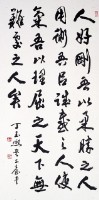 人好剛吾以柔勝之人
用術吾以誠感之人使
氣吾以理屈之天下無
難處之人矣